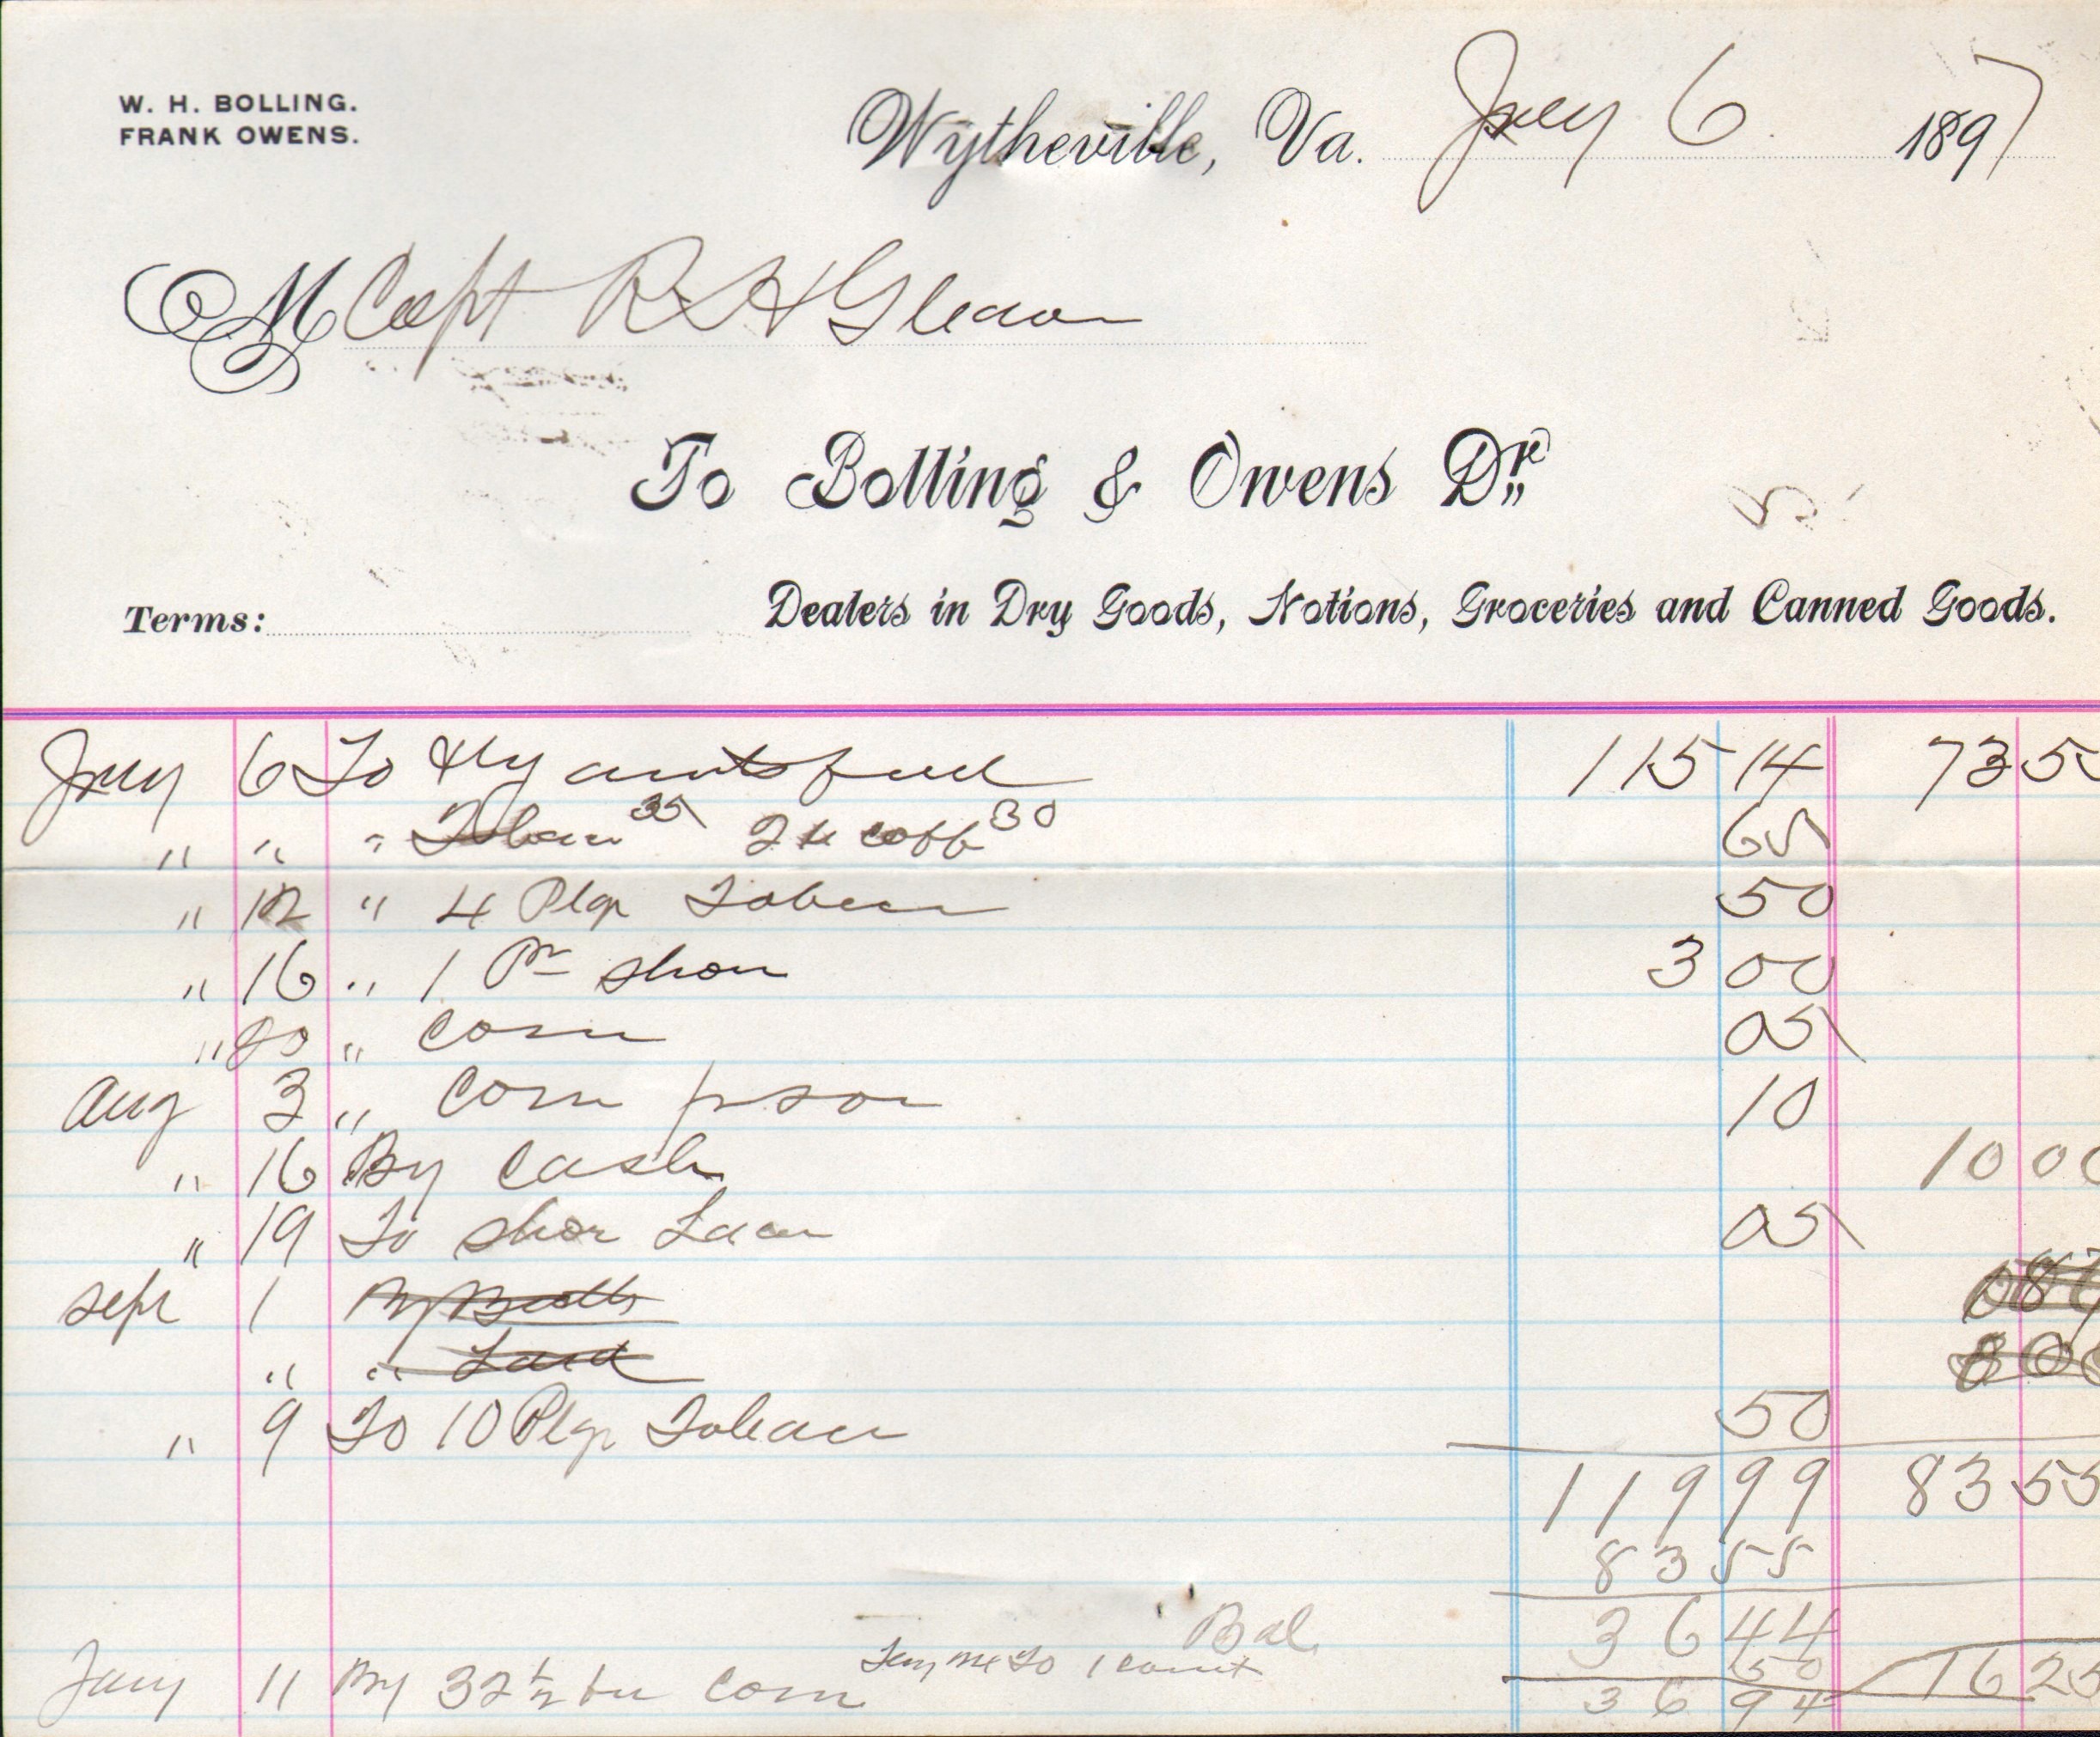 W. H. BOLLING.
FRANK OWENS.
Wytheville, Va. July 6 1897
M Capt R H Gleaves
To Bolling & Owens Dr.
Terms: Dealers in Dry Goods, Notions, Groceries and Canned Goods.
July 6 To 115 14 73 55
" " " 35 2 # coff 30 65
" 12 " 4 Plgs Tobacco 50
" 16 " 1 Pr shoes 3 00
" 20 " Corn 05
Aug 3 " Corn 10
" 16 By Cash 10 00
" 19 To shoe Laces 05
Sept 1 By
" " Lard
" 9 To 10 Plgs Tobacco 50
119 99 83 55
83 55
Bal 36 44
50
Jany 11 By 32 1/2 bu Corn 36 94 16 25